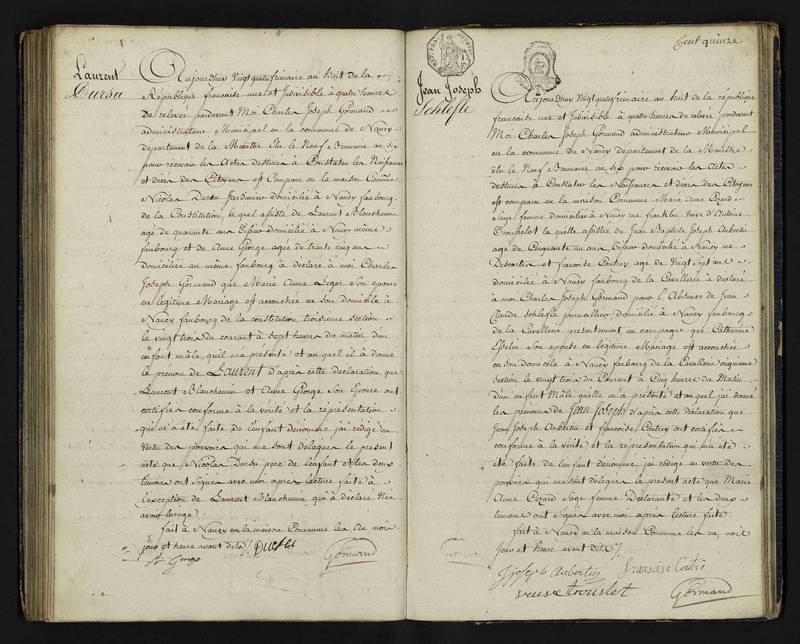 Laurent
Dursu
Aujourdhuy Vingt quatre frimaire an huit de la
République francaise une et Indivisible à quatre heures
de relevée pardevant Moi Charles Joseph Gormand
administrateur Municipal en la commune de Nancy
departement de la Meurthe Elu le Neuf Brumaire an six
pour recevoir les Actes destinés à Constater les Naissances
et décès des Citoyens est Comparu en la maison Comune
Nicolas Dursu Jardinier domicilié à Nancy faubourg
de la Constitution, le quel assisté de Laurent Blanchemin
agé de quarante ans domicilié à Nancy même
faubourg et de Anne George agée de trente cinq ans
domiciliée au même faubourg à déclaré à moi Charles
Joseph Gormand que Marie Anne Leger son epouse
en légitime Mariage est accouchée en son domicile à
Nancy faubourg de la constitution troisieme section
le vingt trois du courant à sept heures du matin d'un
enfant mâle, qu'il m'a présenté et au quel il à donné
le prenom de Laurent d'après cette déclaration que
Laurent Blanchemin et Anne George son Epouse ont
certifiée conforme à la vérité et la représentation
qui m'a été faite de l'enfant dénommé j'ai rédigé en
vertu des pouvoirs qui me sont délégués le présent
acte que Nicolas Dursu pere de l'enfant et les deux
temoins ont Signés avec moi après lecture faite à
l'exception de Laurent Blanchemin qui à déclaré n'en
avoir l'usage
fait à Nancy en la maison Commune les An mois
jour et heure avant dits
George
Gormand
Cent quinze
Jean Joseph
Schlesle
Aujourdhuy Vingt quatre frimaire an huit de la république
francaise une et Indivisible à quatre heures de relevée pardevant
Moi Charles Joseph Gormand administrateur Municipal
en la commune de Nancy departement de la Meurthe
élu le Neuf Brumaire an six pour recevoir les Actes
destinés à Constater les Naissances et décès des Citoyens
est comparu en la maison Commune Marie Anne
Sage femme domiciliée à Nancy rue franklin Veuve d'Antoine
la quelle assistée de Jean Baptiste Joseph Aubertin
agé de Cinquante un ans domicilié à Nancy rue
Descartes et francoise Coutrey agée de Vingt Sept ans
domiciliée à Nancy faubourg de la Cavallerie à déclaré
à moi Charles Joseph Gormand pour l'Absence de Jean
Claude Schlesle journallier domicilié à Nancy faubourg
de la Cavallerie présentement en campagne que Catherine
son epouse en légitime Mariage est accouchée
en son domicile à Nancy faubourg de la Cavallerie
section le vingt trois du Courant à Cinq heures du Matin
d'un enfant Male quelle m'a présenté et au quel j'ai donné
les prénoms de Jean Joseph d'après cette déclaration que
Jean Joseph Aubertin et francoise Coutrey ont certifiée
conforme à la vérité et la représentation qui m'a été
été faite de l'enfant dénommé j'ai rédigé en vertu des
pouvoirs qui me sont délégués le présent acte que Marie
Anne Sage femme Déclarante et les deux
temoins ont Signés avec moi après lecture faite
fait à Nancy en la maison Commune les an, mois
Jour et heure avant dits
joseph Aubertin francoise Coutré
veuve
Gormand